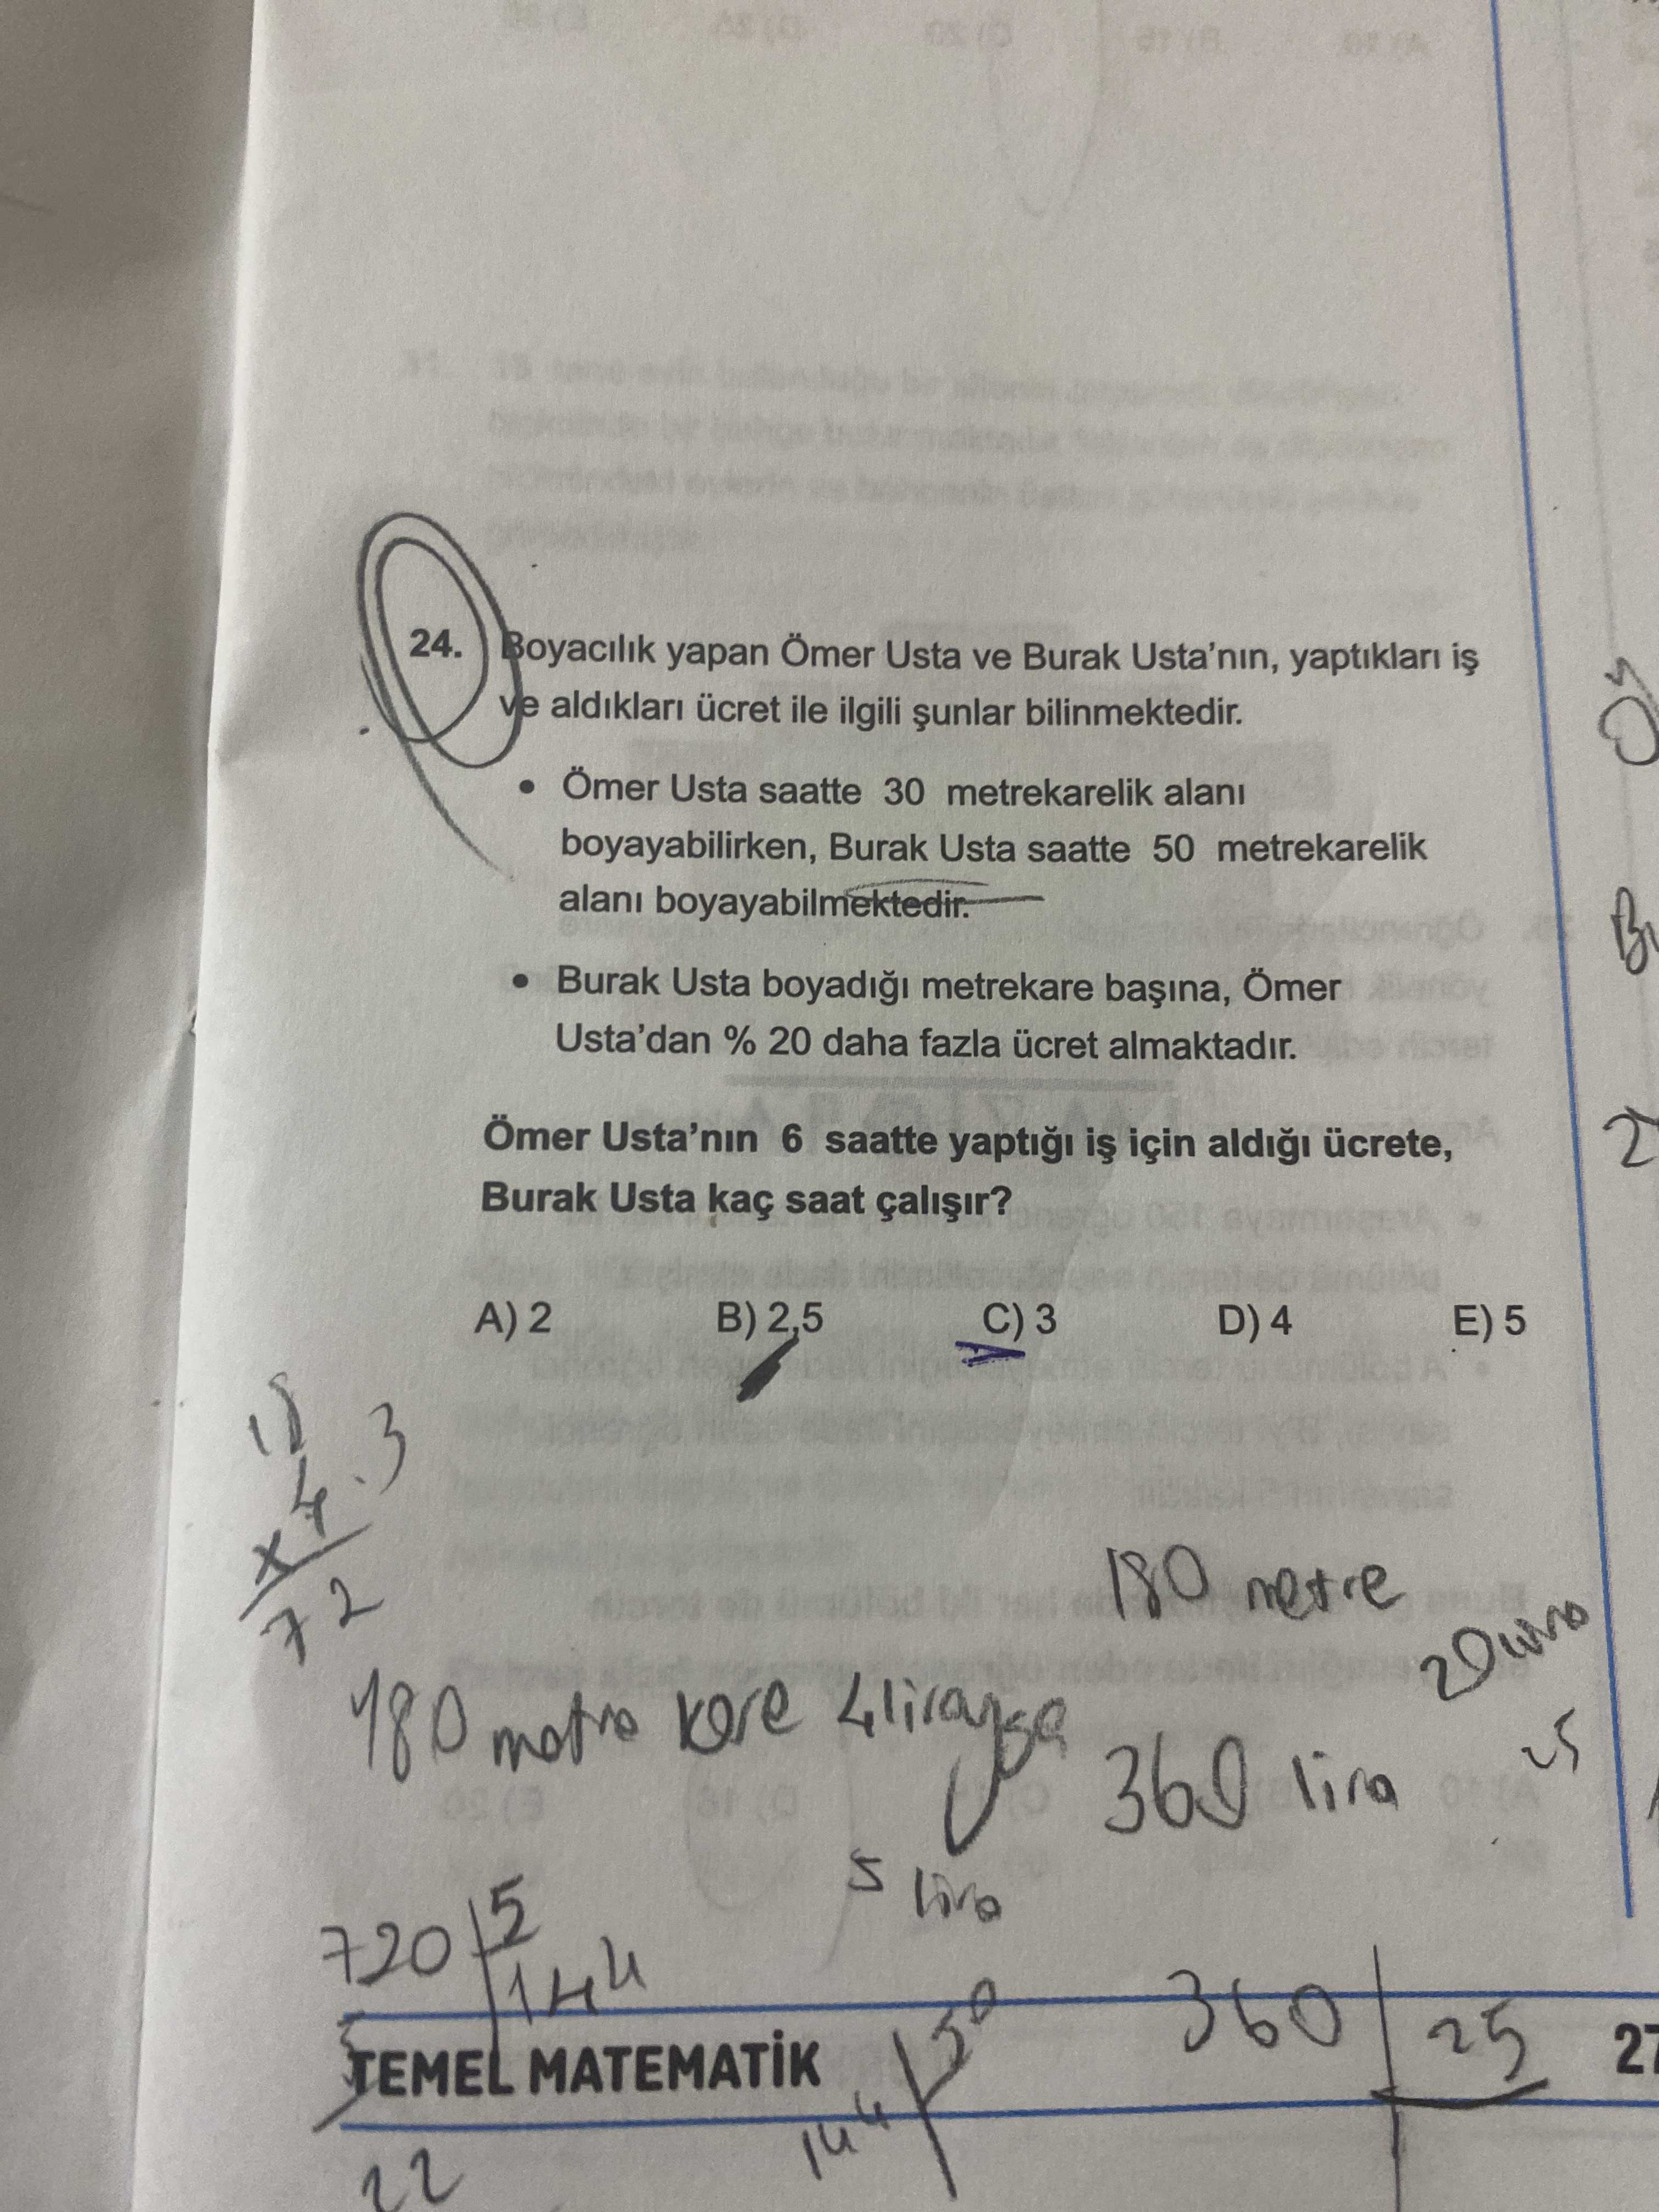 24. Boyacılık yapan Ömer Usta ve Burak Usta'nın, yaptıkları iş
ve aldıkları ücret ile ilgili şunlar bilinmektedir.
• Ömer Usta saatte 30 metrekarelik alanı
boyayabilirken, Burak Usta saatte 50 metrekarelik
alanı boyayabilmektedir.
• Burak Usta boyadığı metrekare başına, Ömer
Usta'dan % 20 daha fazla ücret almaktadır.
Ömer Usta'nın 6 saatte yaptığı iş için aldığı ücrete,
Burak Usta kaç saat çalışır?
A) 2 B) 2,5 C) 3 D) 4 E) 5
18
4 . 3
x
72
180 metre
20 lira
180 metre kere 4 liraysa
360 lira 25
5 lira
720 5
144
360 25
144 50
TEMEL MATEMATİK 27
22